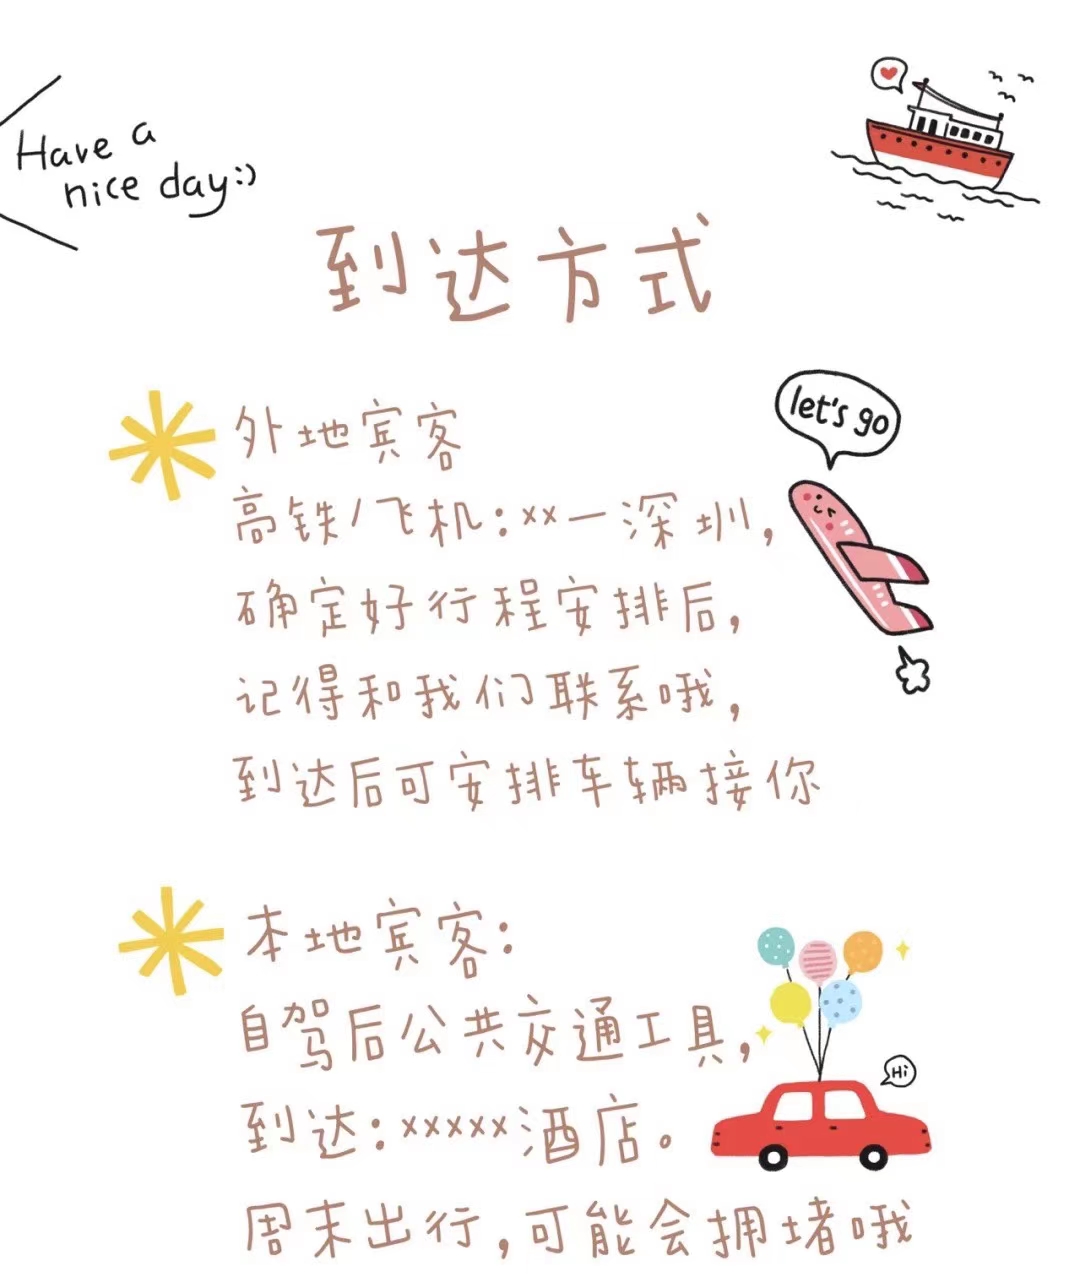 Have a
nice day:)
到达方式
let's go
外地宾客
高铁/飞机:xx一深圳,
确定好行程安排后,
记得和我们联系哦,
到达后可安排车辆接你
本地宾客:
自驾后公共交通工具,
Hi
到达:xxxxx酒店。
周末出行,可能会拥堵哦